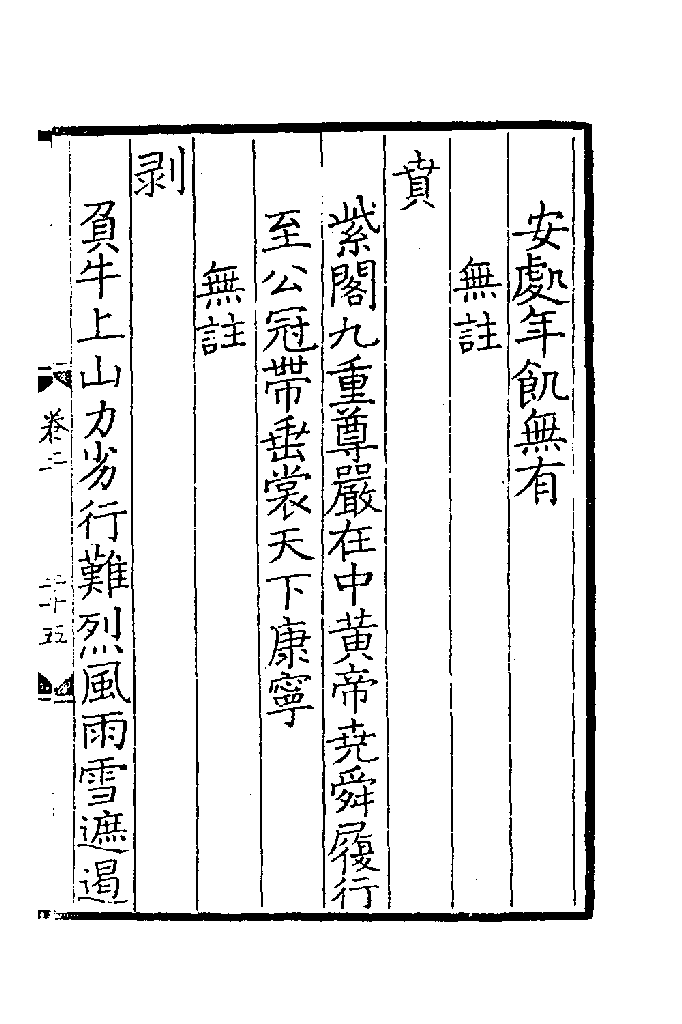 安處年飢無有
無註
賁
紫閣九重尊嚴在中黃帝堯舜履行
至公冠帶垂裳天下康寧
無註
剥
負牛上山力劣行難烈風雨雪遮遏
卷二
二十五